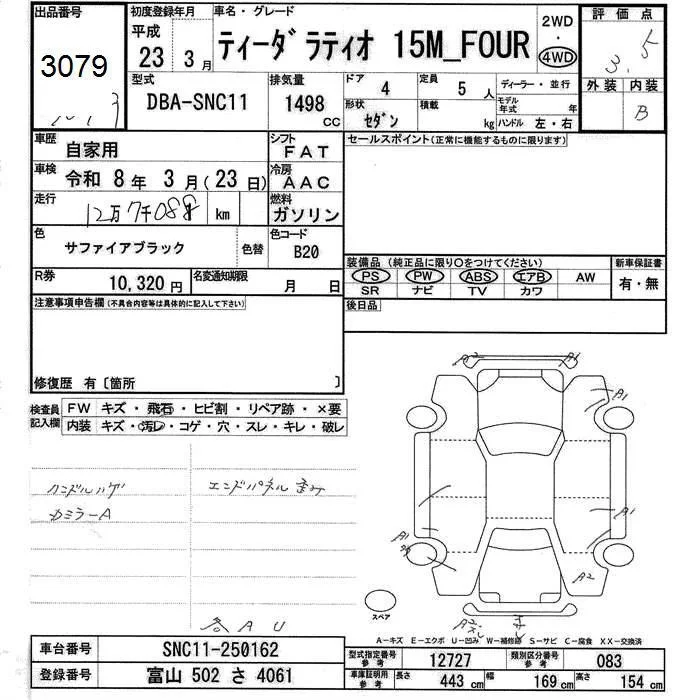 出品番号
3079
初度登録年月
平成
23 年 3 月
車名・グレード
ティーダ ラティオ 15M_FOUR
2WD
・
4WD
評価点
3.5
外装 内装
B
型式
DBA-SNC11
排気量
1498
cc
ドア
4
定員
5 人
形状
セダン
積載
kg
ディーラー・並行
モデル年式 年
ハンドル 左・右
車歴
自家用
シフト
FAT
セールスポイント(正常に機能するものに限ります)
車検
令和 8 年 3 月(23 日)
冷房
AAC
走行
12万7千088
km
燃料
ガソリン
色
サファイアブラック
色替
色コード
B20
装備品(純正品に限り○をつけてください)
PS PW ABS エアB AW
SR ナビ TV カワ
新車保証書
有・無
R券
10,320 円
名変通知期限
月 日
後日品
注意事項申告欄(不具合内容等は具体的に記入して下さい)
修復歴 有〔箇所 〕
検査員
記入欄
FW キズ・飛石・ヒビ割・リペア跡・×要
内装 キズ・汚レ・コゲ・穴・スレ・キレ・破レ
ハンドルハゲ
エンドパネル歪み
カミラーA
各AU
A2 A1
A1
A1
A1
A2
スペア
A2
A-キズ E-エクボ U-凹み W-補修跡 S-サビ C-腐食 XX-交換済
車台番号
SNC11-250162
登録番号
富山 502 さ 4061
型式指定番号
参考
12727
類別区分番号
参考
083
車庫証明用
参考
長さ
443 cm
幅
169 cm
高さ
154 cm